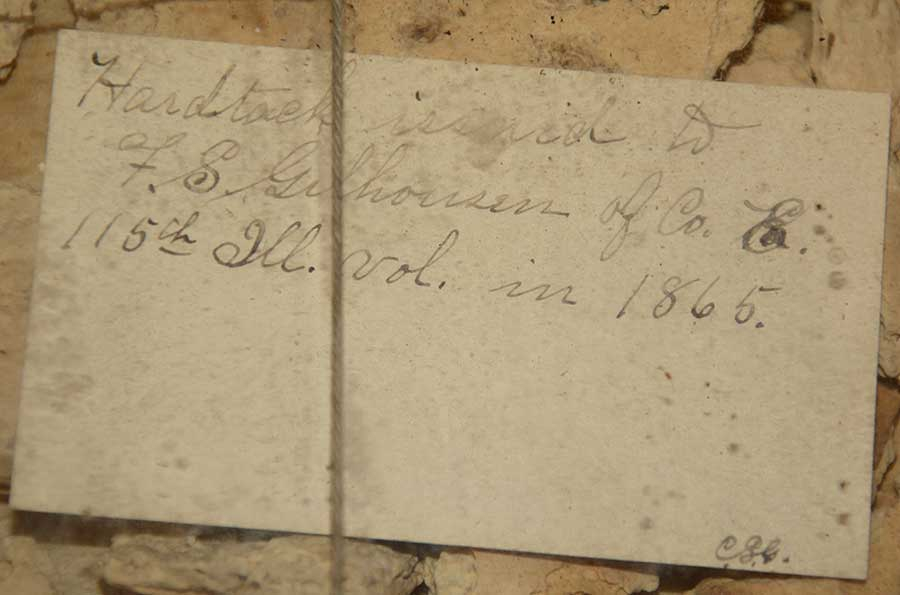 Hardtack issued to
F. E. Gilhousen of Co. E.
115th Ill. Vol. in 1865.